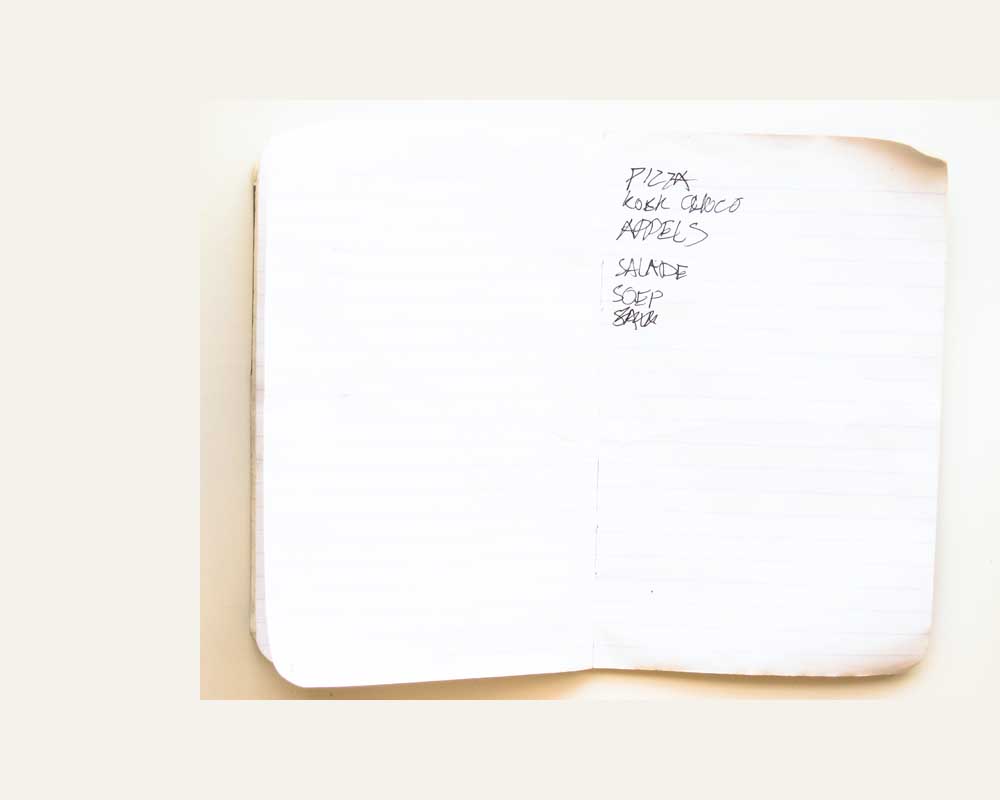 PIZZA
KOEK CHOCO
APPELS
SALADE
SOEP